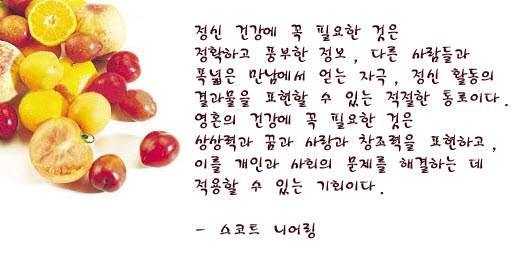 정신 건강에 꼭 필요한 것은
정확하고 풍부한 정보, 다른 사람들과
폭넓은 만남에서 얻는 자극, 정신 활동의
결과물을 표현할 수 있는 적절한 통로이다.
영혼의 건강에 꼭 필요한 것은
상상력과 꿈과 사랑과 창조력을 표현하고,
이를 개인과 사회의 문제를 해결하는 데
적용할 수 있는 기회이다.
- 스코트 니어링